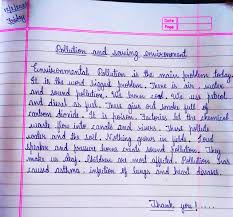 Date
Page
Pollution and saving environment
Environmental Pollution is the main problem today.
It is the word biggest problem. There is air, water
and sound pollution. We burn coal. We use petrol
and diesel as fuel. These give out smoke full of
carbon dioxide. It is poison. Factories let the chemical
waste flow into canals and rivers. These pollute
water and the soil. Nothing grows in it. Loud
speaker and pressure horns create sound pollution. They
make us deaf. Children are most affected. Pollution has
caused asthma, infection of lungs and heart disease.
Thank you!....